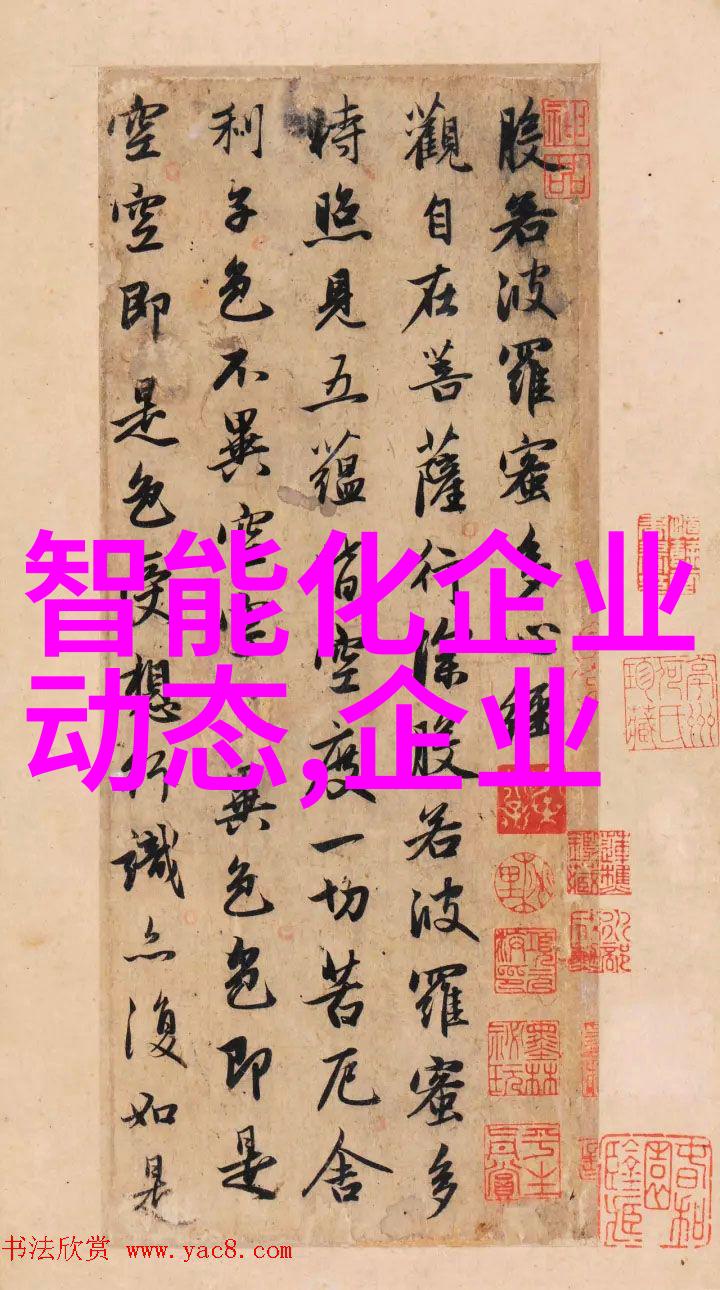 般若波羅蜜多心經
觀自在菩薩行深般若波羅蜜多
時照見五蘊皆空度一切苦厄舍
利子色不異空空異色色即是
空空即是色受想行識亦復如是
智能化企业
动态,企业
神品
墨林祕玩
平生真賞
书法欣赏 www.yac8.com